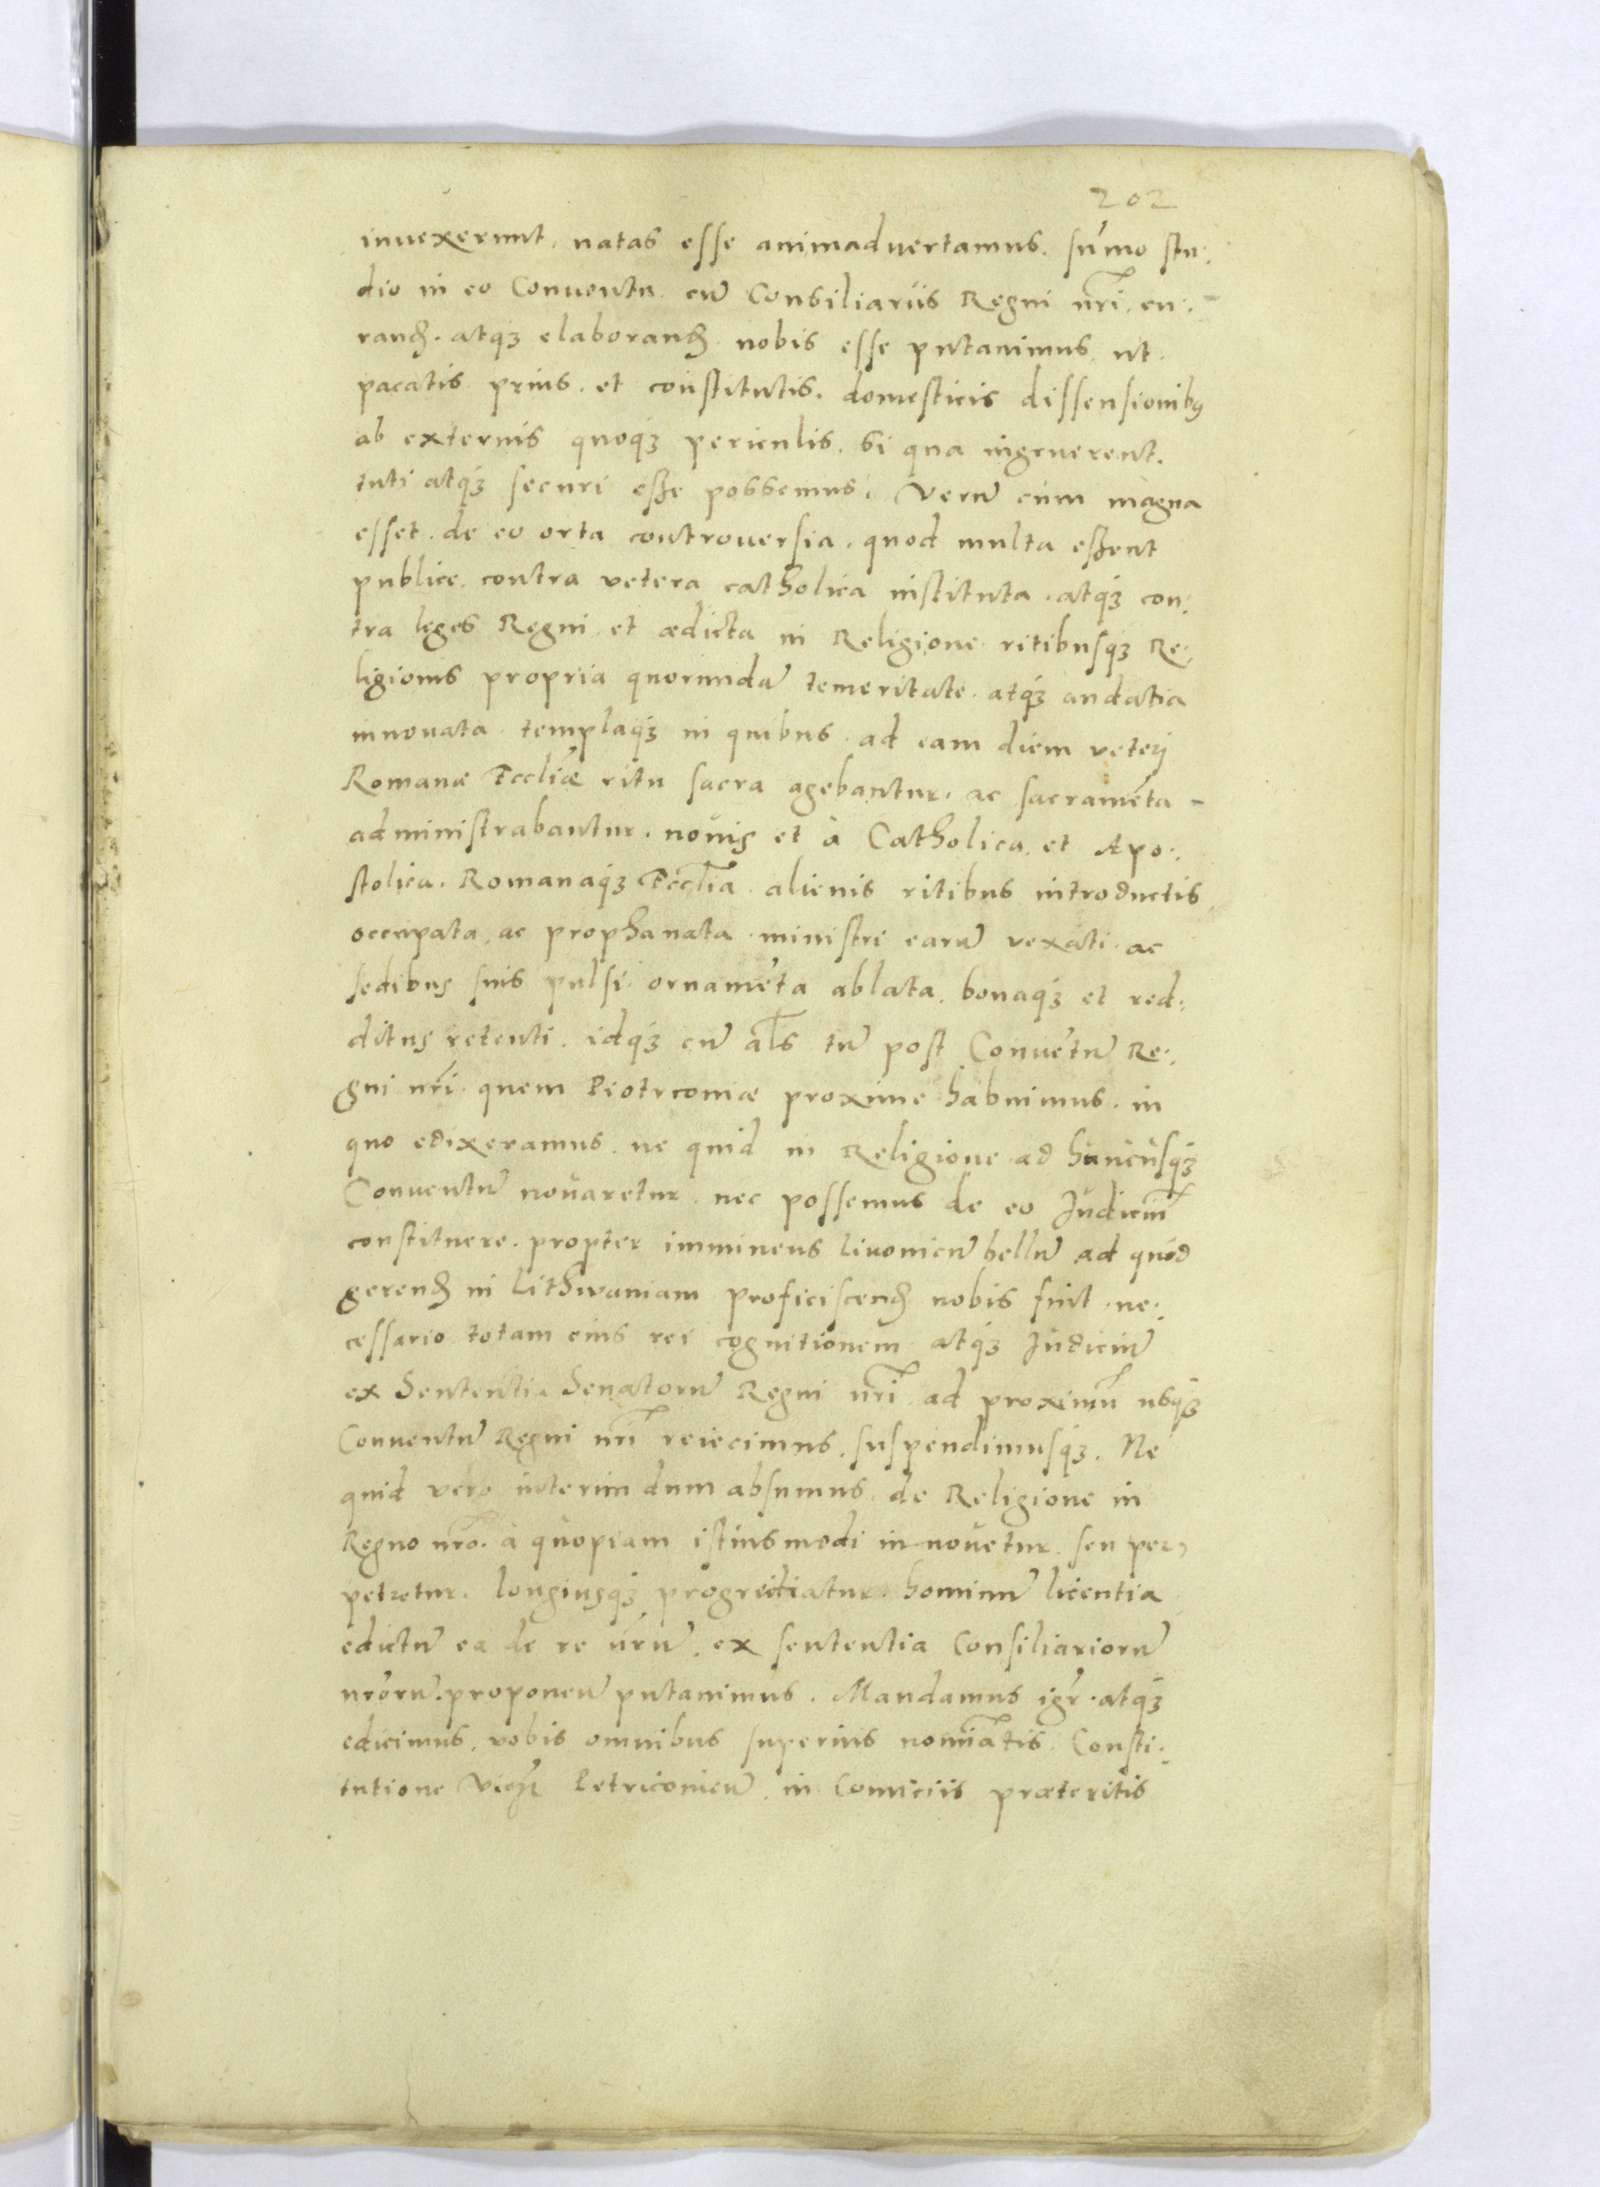 202
inuexerunt, natas esse animaduertamus. sūmo stu:
dio in eo Conuentu, cū Consiliariis Regni nrī, cu:
rand. atq3 elaborand nobis esse putauimus, ut
pacatis prius, et constitutis, domesticis dissensionibus
ab externis quoq3 periculis, si qua ingruerent,
tuti atq3 securi esse possemus, Verū cùm magna
esset de eo orta controuersia, quod multa essent
publice, contra vetera catholica instituta, atq3 con:
tra leges Regni et ædicta in Religione ritibusq3 Re:
ligionis propria quorundā temeritate, atq3 audatia
innouata, templaq3 in quibus ad eam diem veterj
Romanæ Eccliæ ritu sacra agebantur, ac sacramēta
administrabantur, nouis et à Catholica, et Apo:
stolica, Romanaq3 Ecclia alienis ritibus introductis
occupata, ac prophanata, ministri earū vexati, ac
sedibus suis pulsi, ornamēta ablata, bonaq3 et red:
ditus retenti, idq3 cū als tū post Conuētū Re:
gni nrī quem Piotrcouiæ proxime habuimus, in
quo edixeramus, ne quid in Religione ad huncusq3
Conuentū nouaretur, nec possemus de eo Iudiciū
constituere, propter imminens liuonicū bellū ad quod
gerend in Lithwaniam proficiscend nobis fuit, ne:
cessario totam eius rei cognitionem atq3 Iudiciū
ex Sententia Senatorū Regni nrī ad proximū usq3
Conuentū Regni nrī reiecimus, suspendimusq3. Ne
quid vero interim dum absumus, de Religione in
Regno nrō. à quopiam istiusmodi innouetur, seu per
petretur, longiusq3 progrediatur hominū licentia
edictū ea de re nrū, ex sententia Consiliariorū
nrōrū. proponēū putauimus. Mandamus igr atq3
edicimus, vobis omnibus superius nomiatis, Consti:
tutione Petricouieñ, in Comiciis præteritis